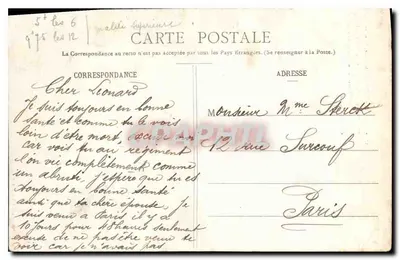 5f les 6
9f75 les 12
CARTE POSTALE
La Correspondance au recto n'est pas acceptée par tous les Pays étrangers. (Se renseigner à la Poste.)
CORRESPONDANCE
Cher Léonard
Je suis toujours en bonne
santé et comme tu le vois
loin d'être mort,
car vois tu au régiment
l'on vit complètement comme
un abruti, j'espère que tu es
toujours en bonne santé
ainsi que ta chère épouse. Je
suis venu à Paris, il y a
10 jours pour 48 heures seulement
de ne pas être venu te
voir car je n'avais pas
ADRESSE
Monsieur Mme
12 rue Surcouf
Paris